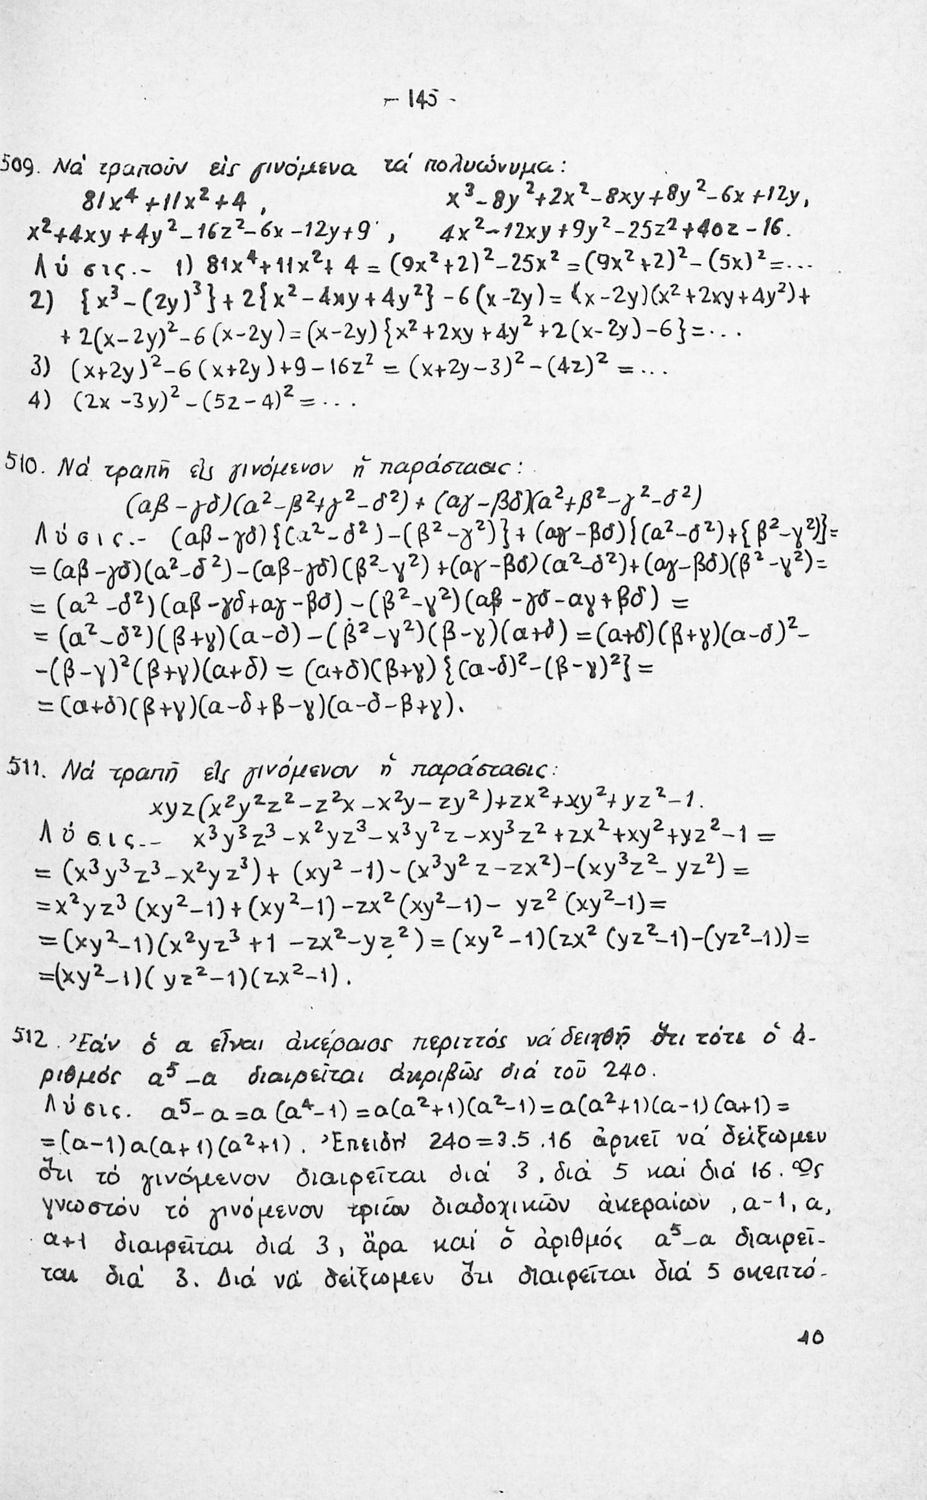 - 145 -
509. Νά τραποῦν εἰς γινόμενα τά πολυώνυμα:
81x⁴+11x²+4, x³-8y²+2x²-8xy+8y²-6x+12y,
x²+4xy+4y²-16z²-6x-12y+9, 4x²-12xy+9y²-25z²+40z-16.
Λύσις.- 1) 81x⁴+11x²+4=(9x²+2)²-25x²=(9x²+2)²-(5x)²=...
2) {x³-(2y)³}+2{x²-4xy+4y²}-6(x-2y)=(x-2y)(x²+2xy+4y²)+
+2(x-2y)²-6(x-2y)=(x-2y){x²+2xy+4y²+2(x-2y)-6}=...
3) (x+2y)²-6(x+2y)+9-16z²=(x+2y-3)²-(4z)²=...
4) (2x-3y)²-(5z-4)²=...
510. Νά τραπῆ εἰς γινόμενον ἡ παράστασις:
(αβ-γδ)(α²-β²+γ²-δ²)+(αγ-βδ)(α²+β²-γ²-δ²)
Λύσις.- (αβ-γδ){(α²-δ²)-(β²-γ²)}+(αγ-βδ){(α²-δ²)+{β²-γ²)}=
=(αβ-γδ)(α²-δ²)-(αβ-γδ)(β²-γ²)+(αγ-βδ)(α²-δ²)+(αγ-βδ)(β²-γ²)=
=(α²-δ²)(αβ-γδ+αγ-βδ)-(β²-γ²)(αβ-γδ-αγ+βδ)=
=(α²-δ²)(β+γ)(α-δ)-(β²-γ²)(β-γ)(α+δ)=(α+δ)(β+γ)(α-δ)²-
-(β-γ)²(β+γ)(α+δ)=(α+δ)(β+γ){(α-δ)²-(β-γ)²}=
=(α+δ)(β+γ)(α-δ+β-γ)(α-δ-β+γ).
511. Νά τραπῆ εἰς γινόμενον ἡ παράστασις:
xyz(x²y²z²-z²x-x²y-zy²)+zx²+xy²+yz²-1.
Λύσις.- x³y³z³-x²yz³-x³y²z-xy³z²+zx²+xy²+yz²-1=
=(x³y³z³-x²yz³)+(xy²-1)-(x³y²z-zx²)-(xy³z²-yz²)=
=x²yz³(xy²-1)+(xy²-1)-zx²(xy²-1)-yz²(xy²-1)=
=(xy²-1)(x²yz³+1-zx²-yz²)=(xy²-1)(zx²(yz²-1)-(yz²-1))=
=(xy²-1)(yz²-1)(zx²-1).
512. Ἐάν ὁ α εἶναι ἀκέραιος περιττός νά δειχθῇ ὅτι τότε ὁ ἀ-
ριθμός α⁵-α διαιρεῖται ἀκριβῶς διά τοῦ 240.
Λύσις. α⁵-α=α(α⁴-1)=α(α²+1)(α²-1)=α(α²+1)(α-1)(α+1)=
=(α-1)α(α+1)(α²+1). Ἐπειδή 240=3.5.16 ἀρκεῖ νά δείξωμεν
ὅτι τό γινόμενον διαιρεῖται διά 3, διά 5 καί διά 16. Ὡς
γνωστόν τό γινόμενον τριῶν διαδοχικῶν ἀκεραίων, α-1, α,
α+1 διαιρεῖται διά 3, ἄρα καί ὁ ἀριθμός α⁵-α διαιρεῖ-
ται διά 3. Διά νά δείξωμεν ὅτι διαιρεῖται διά 5 σκεπτό-
10